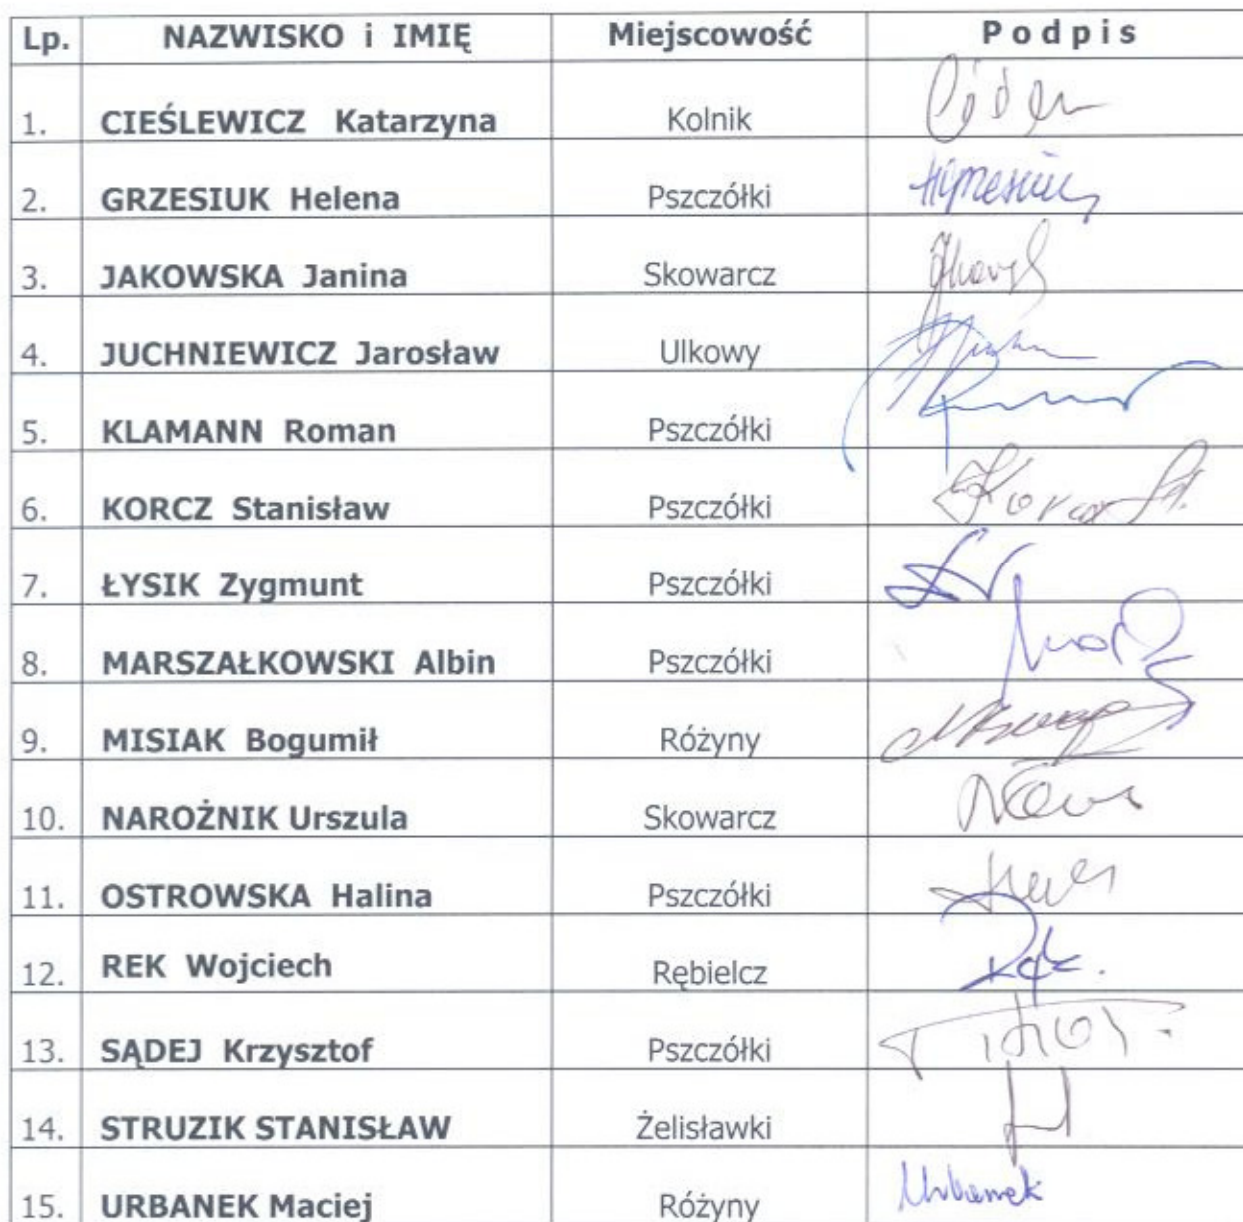 Lp. NAZWISKO i IMIĘ Miejscowość Podpis
1. CIEŚLEWICZ Katarzyna Kolnik
2. GRZESIUK Helena Pszczółki
3. JAKOWSKA Janina Skowarcz
4. JUCHNIEWICZ Jarosław Ulkowy
5. KLAMANN Roman Pszczółki
6. KORCZ Stanisław Pszczółki
7. ŁYSIK Zygmunt Pszczółki
8. MARSZAŁKOWSKI Albin Pszczółki
9. MISIAK Bogumił Różyny
10. NAROŻNIK Urszula Skowarcz
11. OSTROWSKA Halina Pszczółki
12. REK Wojciech Rębielcz
13. SĄDEJ Krzysztof Pszczółki
14. STRUZIK STANISŁAW Żelisławki
15. URBANEK Maciej Różyny Urbanek